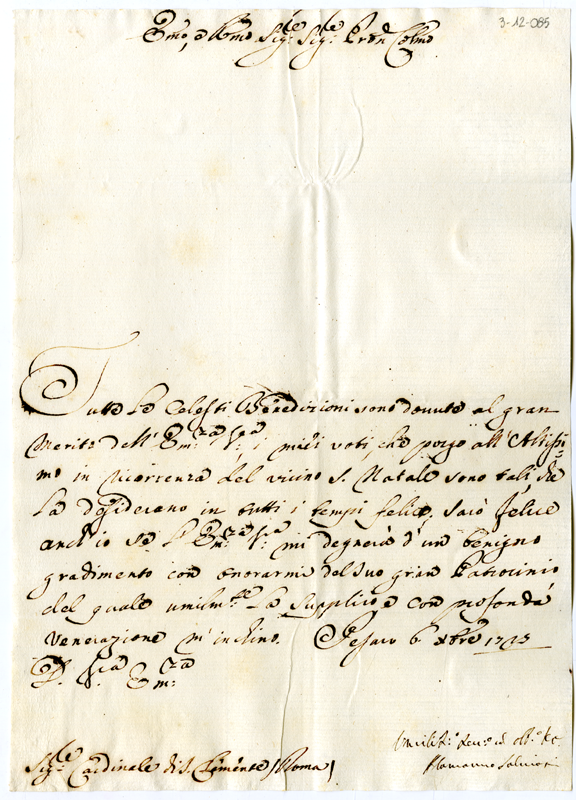 3-12-085
Em̃o, e Rm̃o Sig.re Sig.re Prõn Colm̃o
Tutte le Celesti Benedizioni sono dovute al gran
Merito dell' Em:za S:a, i miei voti, che porgo all' Altissi=
mo in ricorrenza del vicino S. Natale sono tali, che
La desiderano in tutti i tempi felice, sarò felice
anch' io se l' Em:za S:a mi degnerà d' un benigno
gradimento con onorarmi del suo gran Patrocinio
del quale umilm:te La supplico e con profonda
venerazione m' inchino. Pesaro 6 Xbre 1745
D. V.ra Em:za
Umiliss:o Dev:o ed Obl:o
Sig:re Cardinale di S. Clemente / Roma /